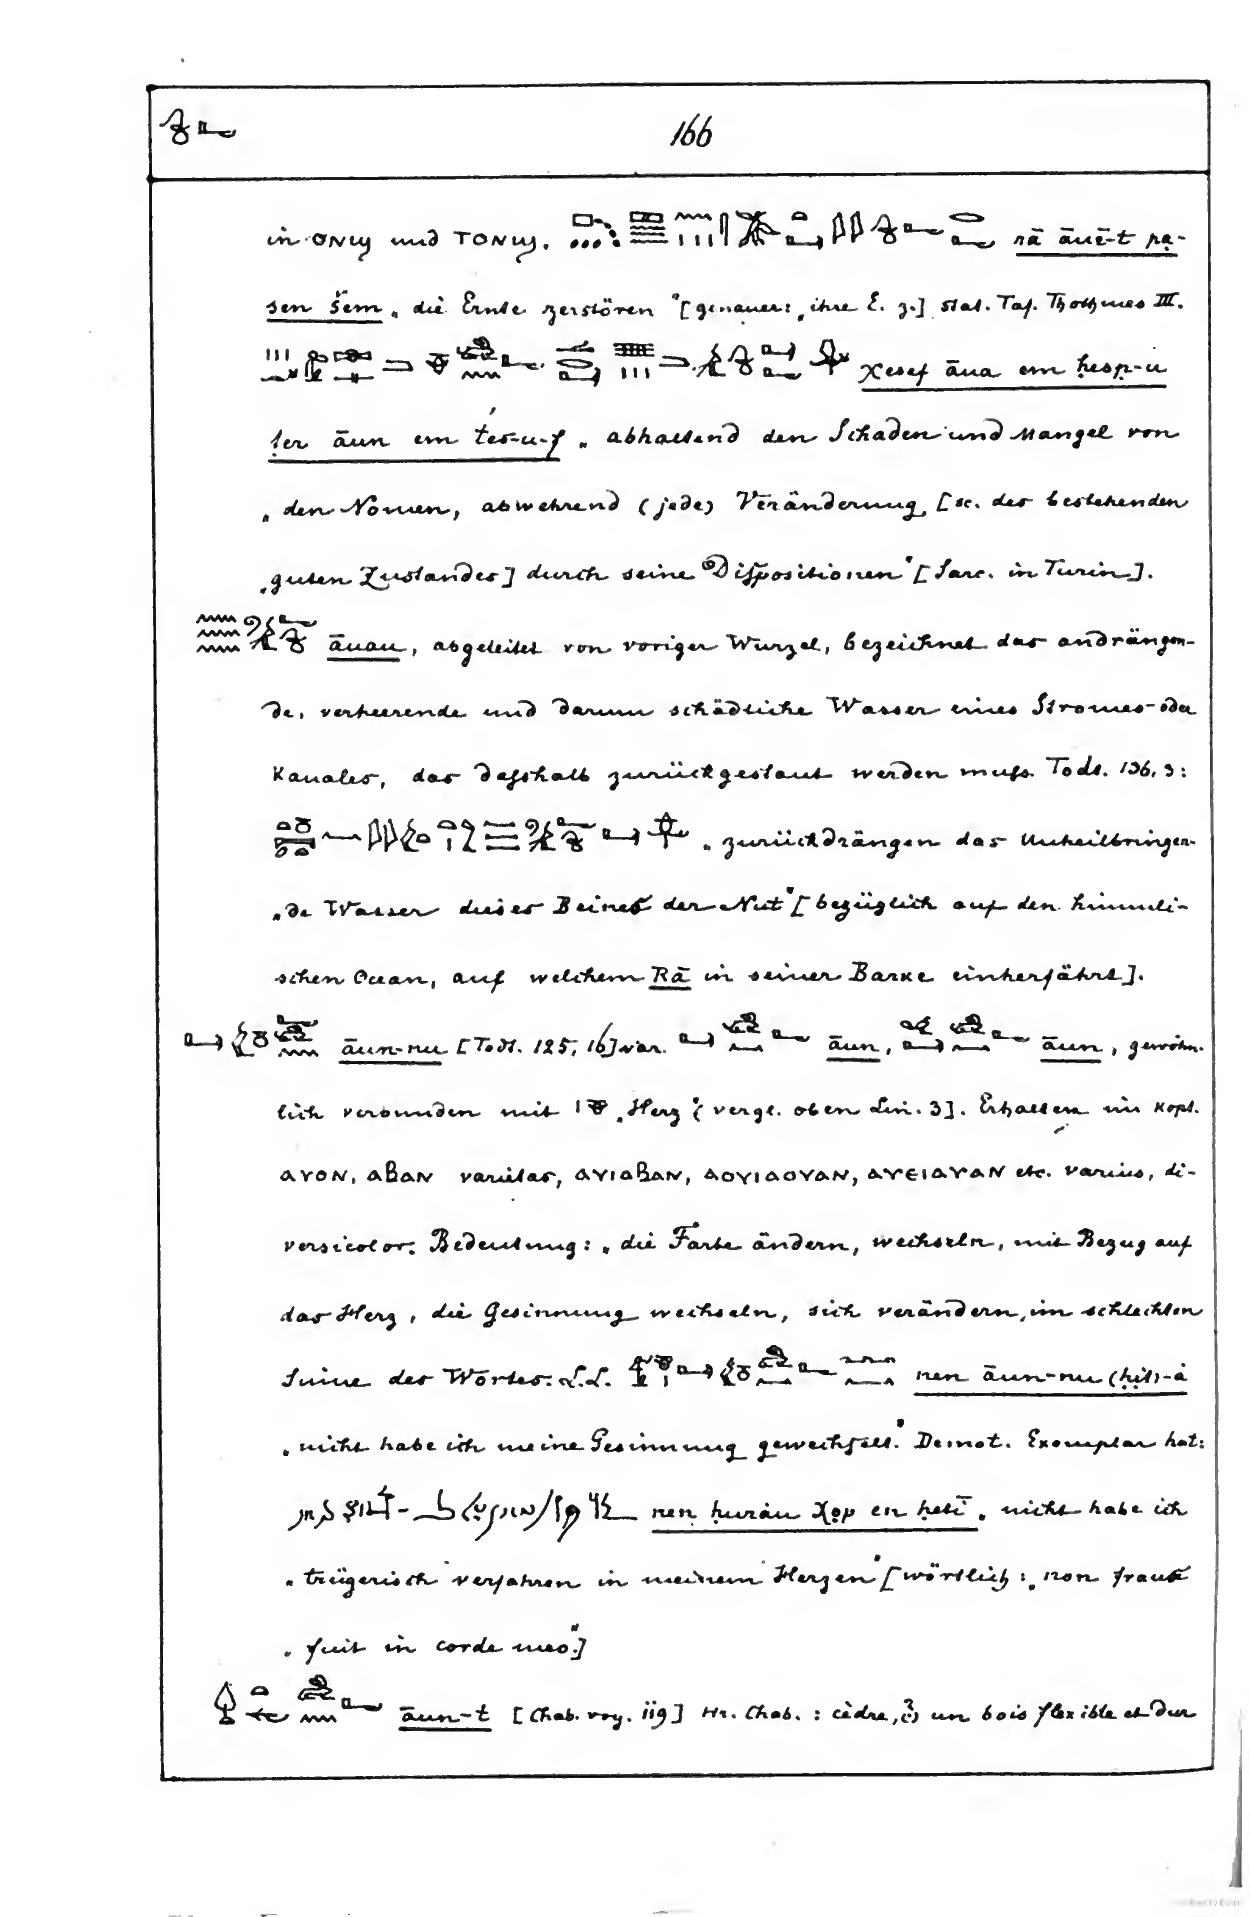 166
in ⲟⲛϣ und ⲧⲟⲛϣ. rā āuē-t pa-
sen šem „die Ernte zerstören“ [genauer: „ihre E. z.] Stat. Taf. Thothmes III.
χesef āua em ḥesp-u
ṭer āun em tes-u-f „abhaltend den Schaden und Mangel von
„den Nomen, abwehrend (jede) Veränderung [sc. des bestehenden
„guten Zustandes] durch seine Dispositionen“ [Sarc. in Turin].
āuau, abgeleitet von voriger Wurzel, bezeichnet das andrängen-
de, verheerende und darum schädliche Wasser eines Stromes oder
Kanales, das deßhalb zurückgestaut werden muß. Todt. 136, 3:
„zurückdrängen das Unheilbringen-
„de Wasser dieses Beines der Nut“ [bezüglich auf den himmli-
schen Ocean, auf welchem Rā in seiner Barke einherfährt].
āun-nu [Todt. 125, 16] var. āun, āun, gewöhn-
lich verbunden mit „Herz“ (vergl. oben Lin. 3]. Erhalten im Kopt.
ⲁⲩⲟⲛ, ⲁⲃⲁⲛ varietas, ⲁⲩⲓⲁⲃⲁⲛ, ⲁⲟⲩⲓⲁⲟⲩⲁⲛ, ⲁⲩⲉⲓⲁⲩⲁⲛ etc. varius, di-
versicolor. Bedeutung: „die Farbe ändern, wechseln, mit Bezug auf
das Herz, die Gesinnung wechseln, sich verändern, im schlechten
Sinne des Wortes. L.L. nen āun-nu (ḥit)-ȧ
„nicht habe ich meine Gesinnung gewechselt.“ Demot. Exemplar hat:
nen ḥurȧu χop en ḥetī „nicht habe ich
„trügerisch verfahren in meinem Herzen“ [wörtlich: „non fraus
„fuit in corde meo“.]
āun-t [Chab. voy. 119] Hr. Chab.: cèdre, un bois flexible et dur